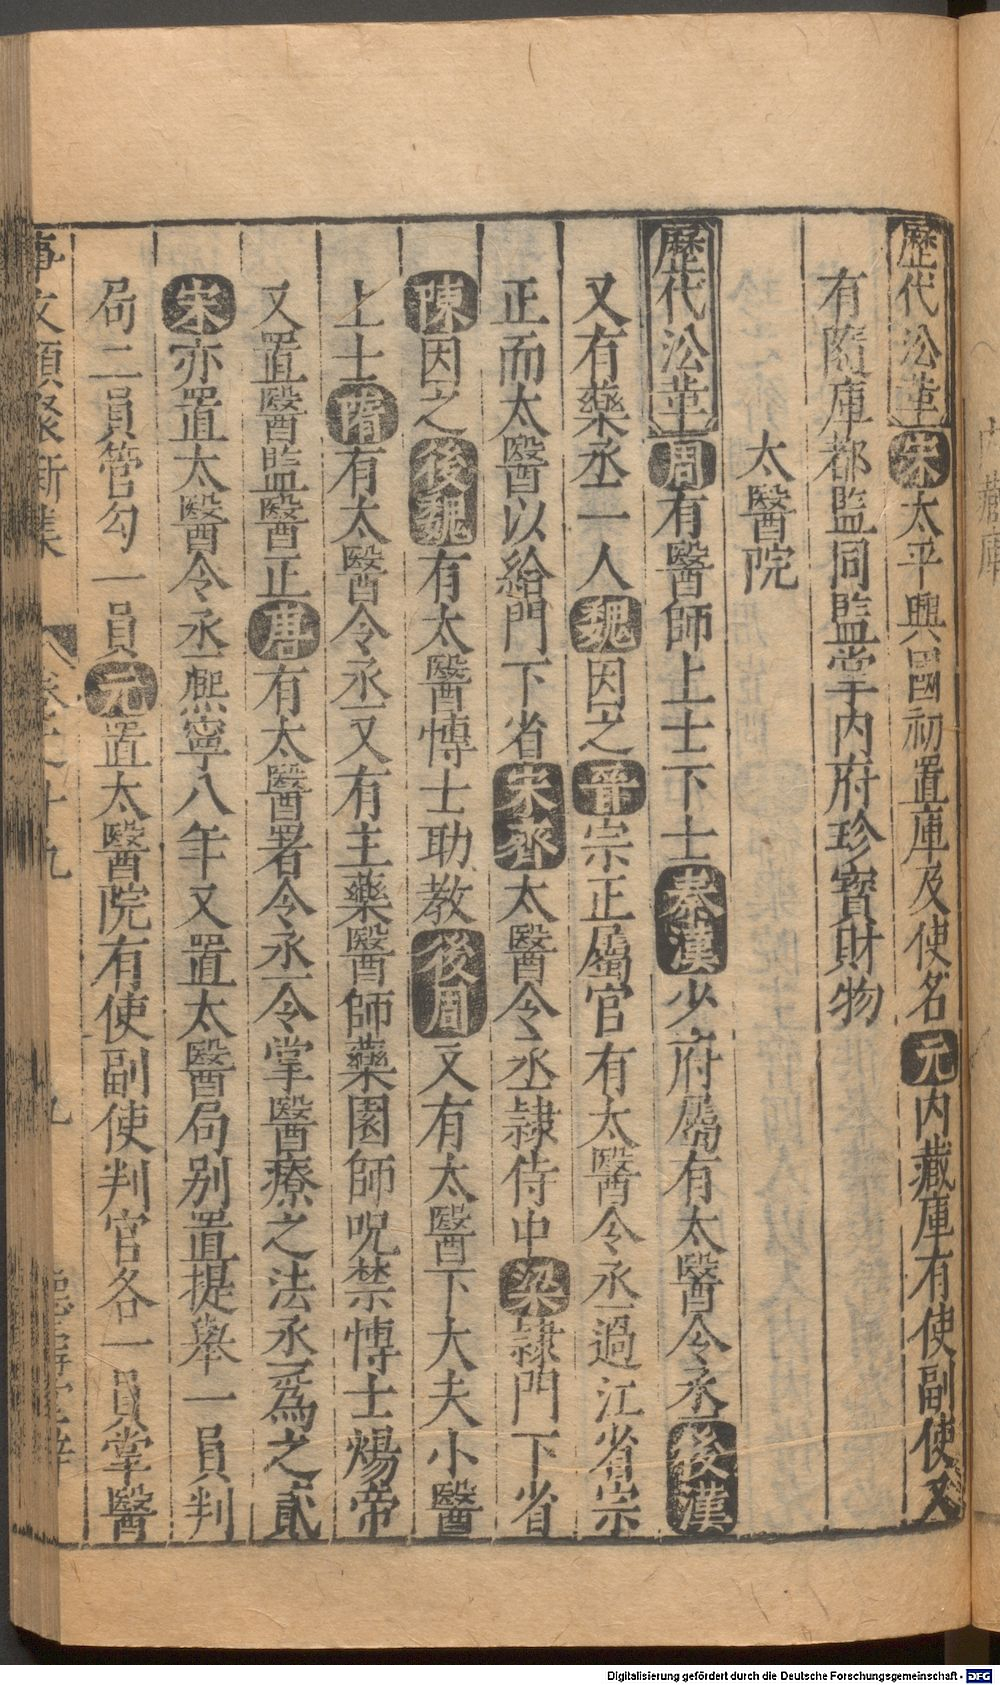 歷代㳂革宋太平興國初置庫及使名元内藏庫有使副使又
有隨庫都監同監掌内府珍寳財物
太醫院
歷代㳂革周有醫師上士下士秦漢少府屬有太醫令丞後漢
又有藥丞一人魏因之晉宗正屬官有太醫令丞過江省宗
正而太醫以給門下省宋齊太醫令丞隷侍中梁隷門下省
陳因之後魏有太醫博士助教後周又有太醫下大夫小醫
上士隋有太醫令丞又有主藥醫師藥園師呪禁博士煬帝
又置醫監醫正唐有太醫署令丞令掌醫療之法丞爲之貳
宋亦置太醫令丞熈寧八年又置太醫局别置提舉一員判
局二員管勾一員元置太醫院有使副使判官各一員掌醫
事文類聚新集 卷之十九 九
Digitalisierung gefördert durch die Deutsche Forschungsgemeinschaft - DFG